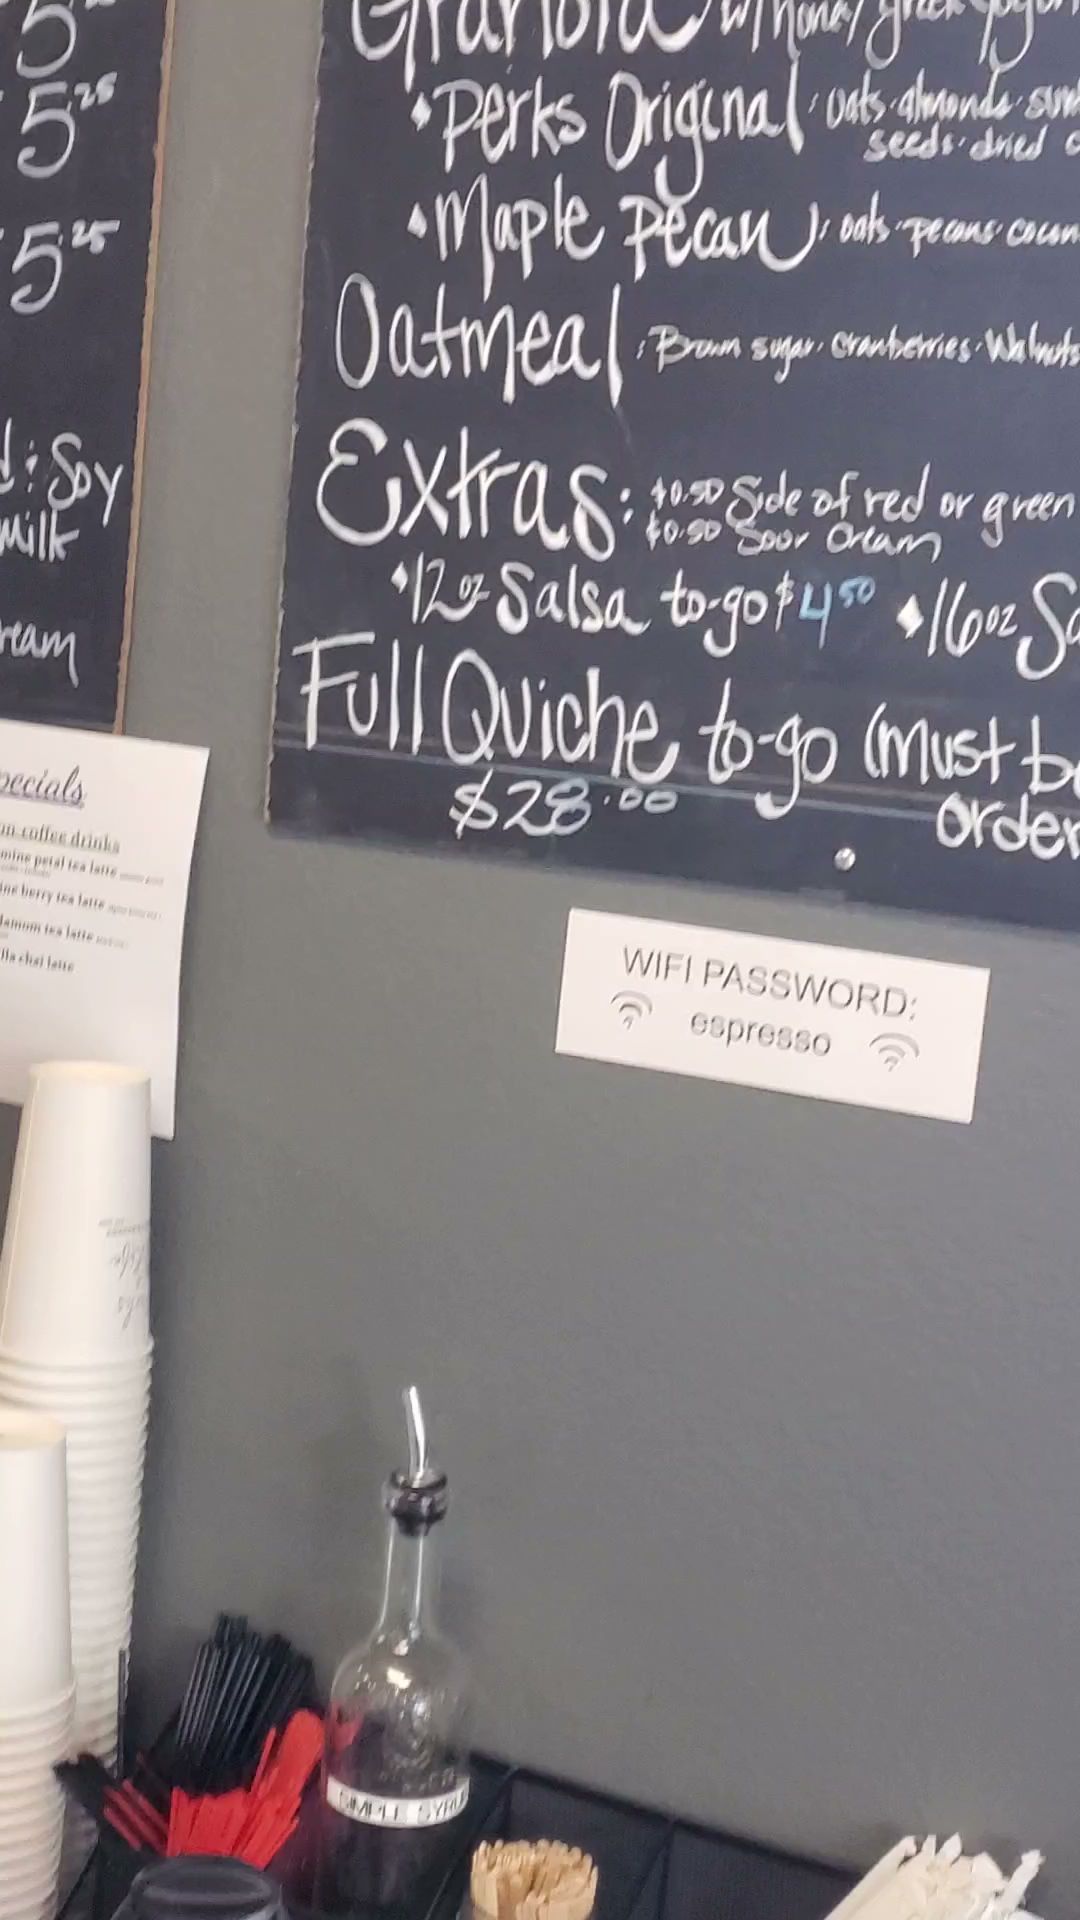 5
5.25
5.25
: Soy
milk
Perks Original : oats · almonds
seeds · dried
Maple Pecan : oats · pecans
Oatmeal : Brown sugar · Cranberries · Walnuts
Extras: $0.50 Side of red or green
$0.50 Sour Cream
12oz Salsa to-go $4.50 16oz
Full Quiche to-go (Must be
order
$28.00
coffee drinks
petal tea latte
berry tea latte
tea latte
chai latte
WIFI PASSWORD:
espresso
SIMPLE